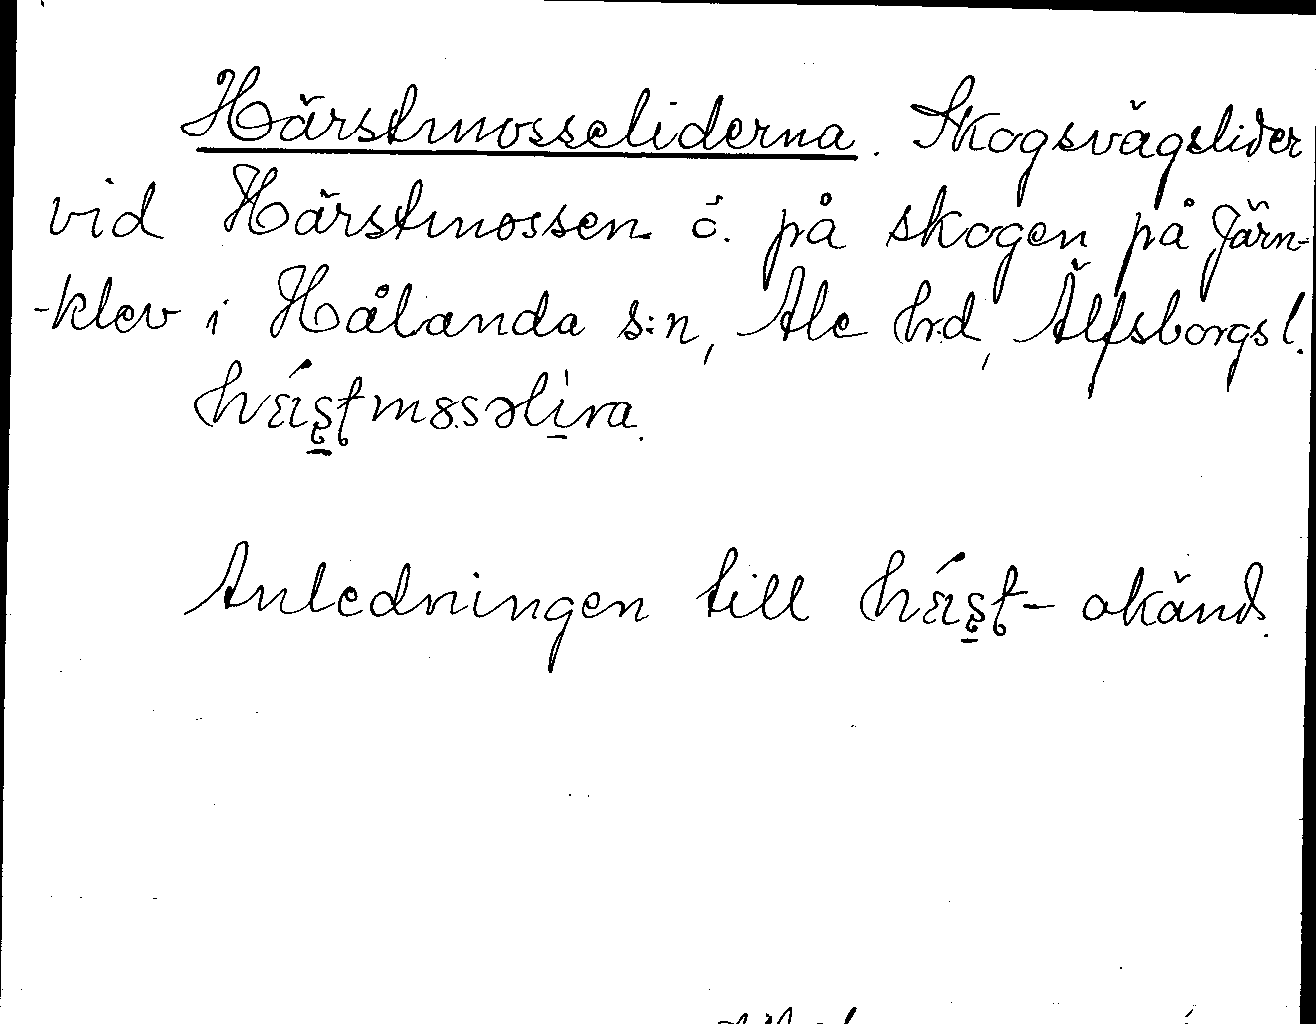 Härstmosseliderna. Skogsvägslider
vid Härstmossen ö. på skogen på Järn-
-klev i Hålanda s:n, Ale hrd, Älfsborgs l.
Anledningen till okänd.